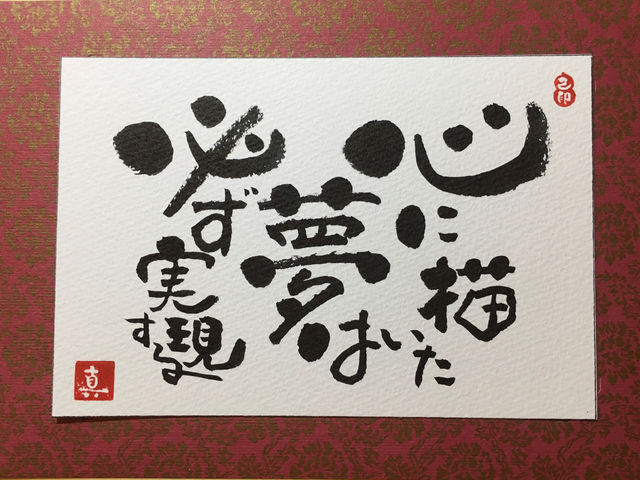 心に描いた
夢は
必ず
実現する
真